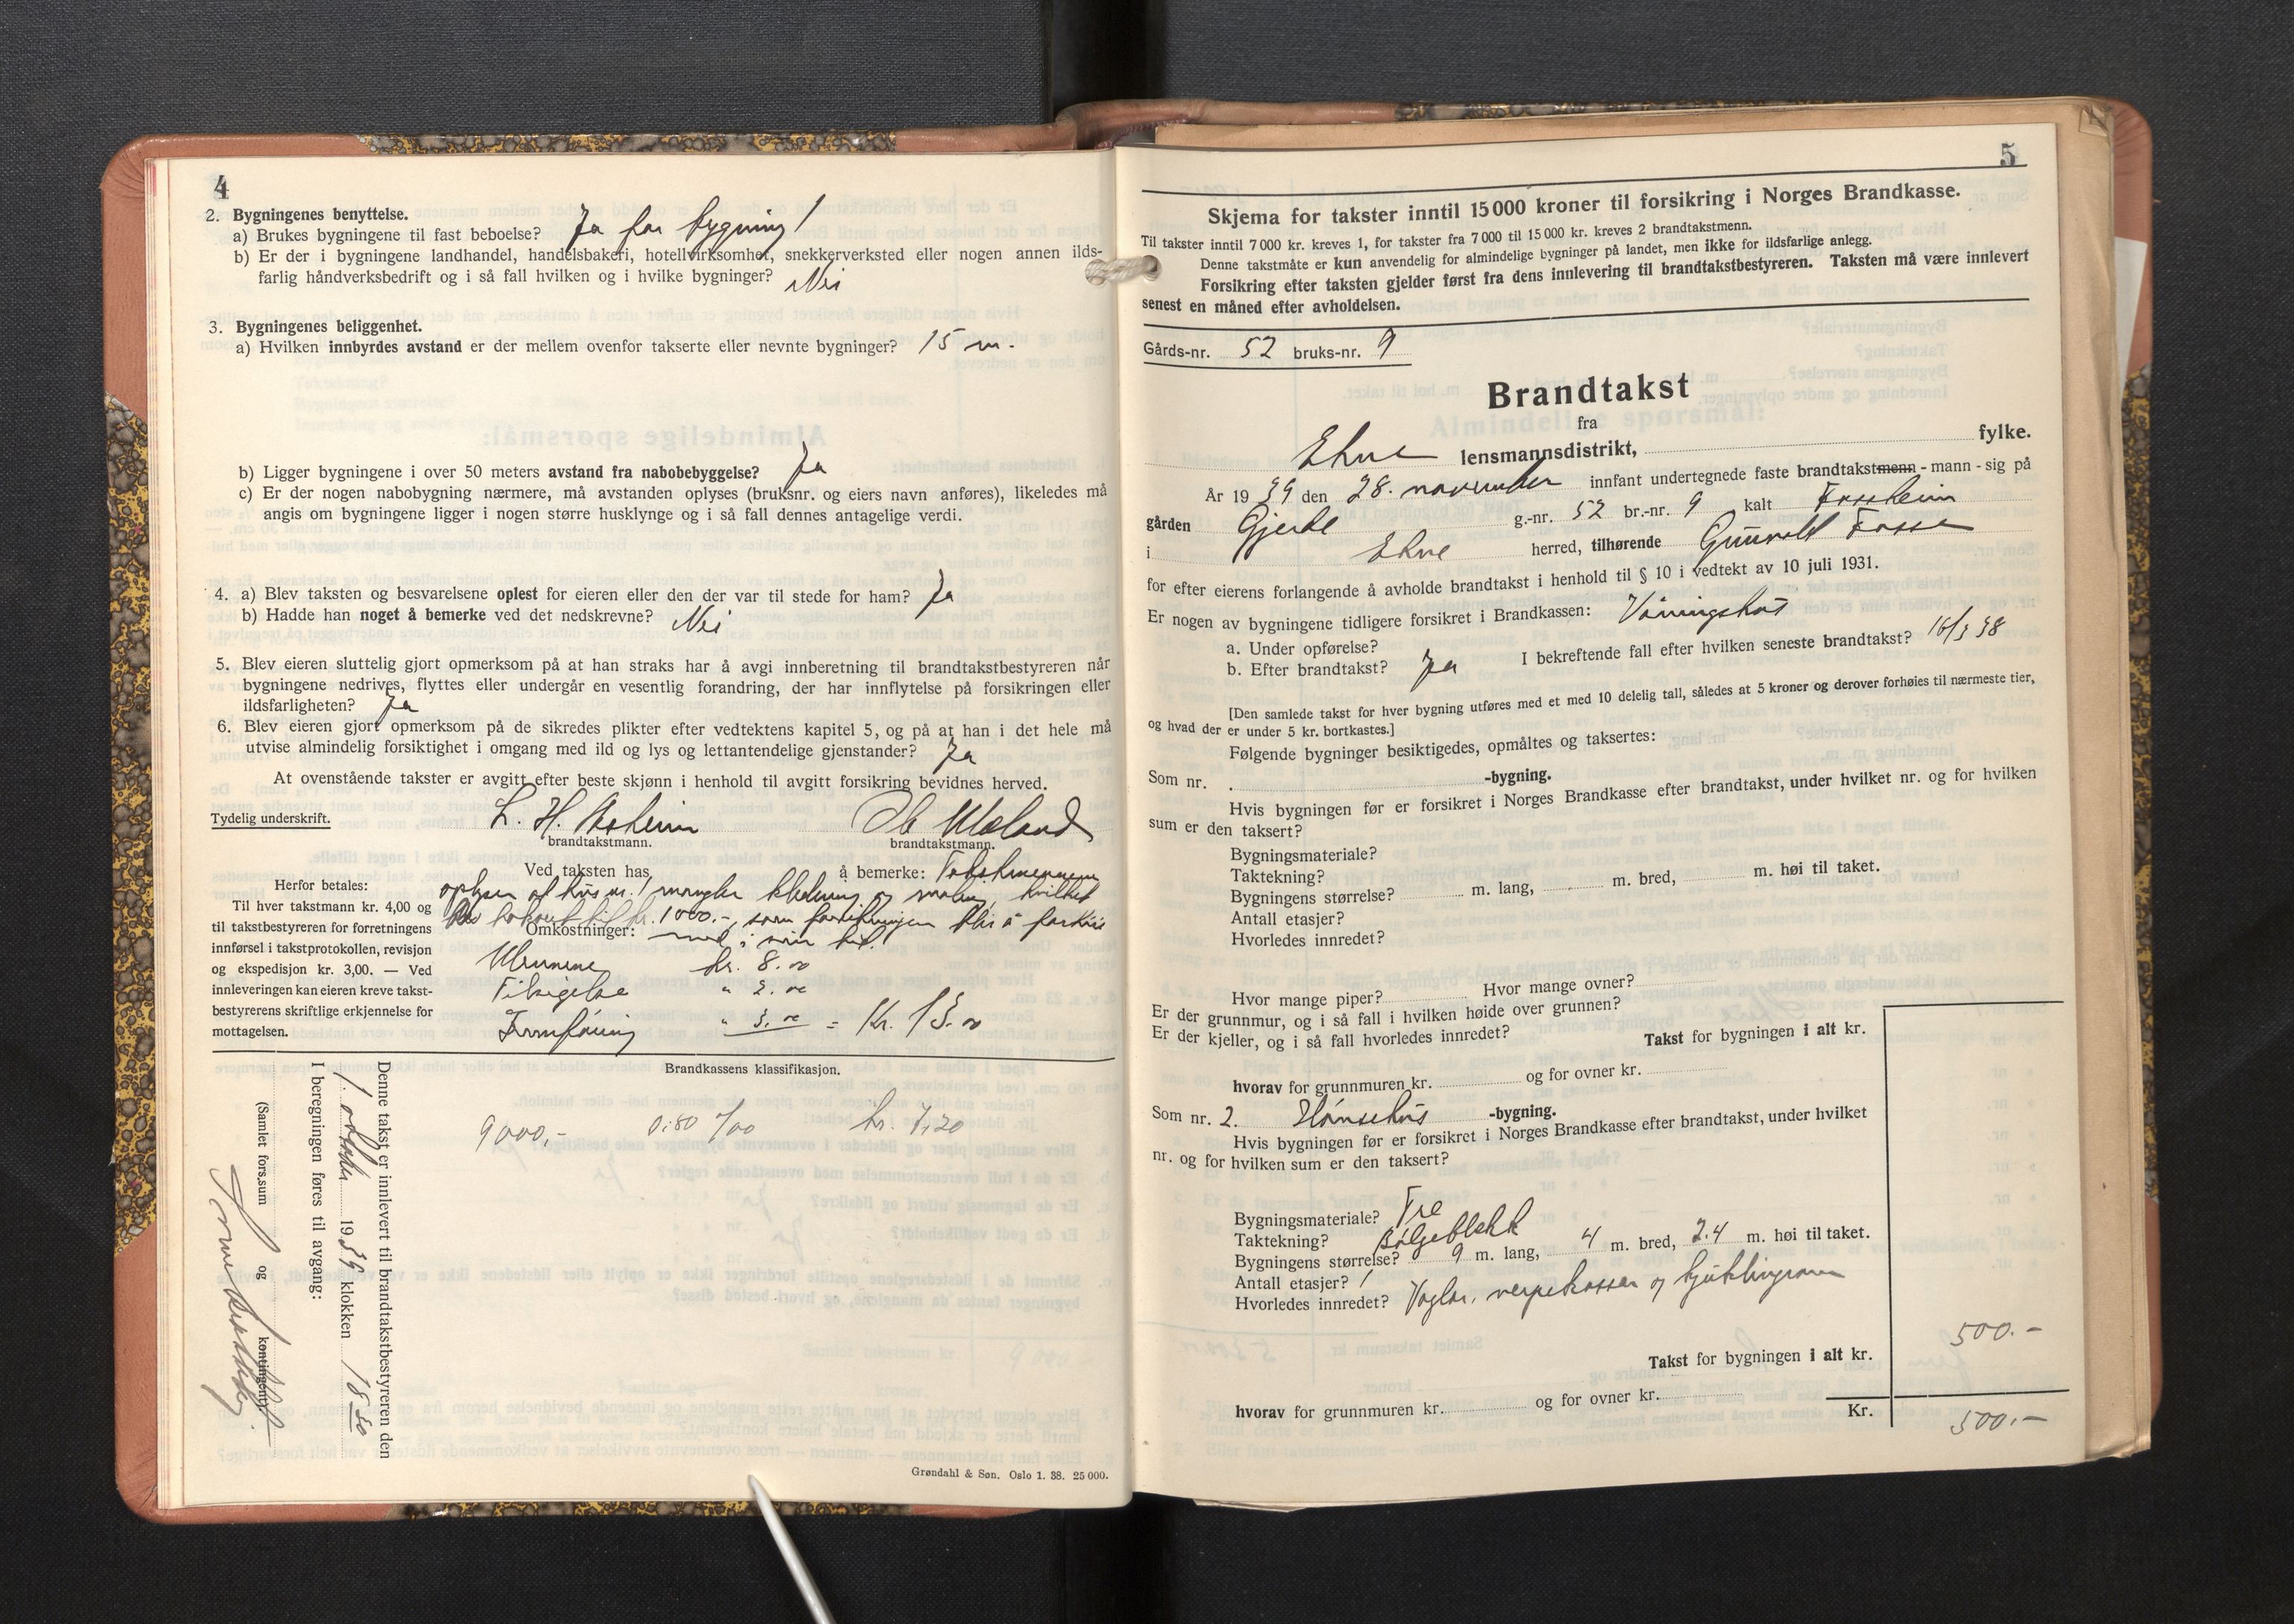 4
2. Bygningenes benyttelse.
a) Brukes bygningene til fast beboelse? Ja for bygning 1
b) Er der i bygningene landhandel, handelsbakeri, hotellvirksomhet, snekkerverksted eller nogen annen ilds-
farlig håndverksbedrift og i så fall hvilken og i hvilke bygninger? Nei
3. Bygningenes beliggenhet.
a) Hvilken innbyrdes avstand er der mellem ovenfor takserte eller nevnte bygninger? 15 m.
b) Ligger bygningene i over 50 meters avstand fra nabobebyggelse? Ja
c) Er der nogen nabobygning nærmere, må avstanden oplyses (bruksnr. og eiers navn anføres), likeledes må
angis om bygningene ligger i nogen større husklynge og i så fall dennes antagelige verdi.
4. a) Blev taksten og besvarelsene oplest for eieren eller den der var til stede for ham? Ja
b) Hadde han noget å bemerke ved det nedskrevne? Nei
5. Blev eieren sluttelig gjort opmerksom på at han straks har å avgi innberetning til brandtakstbestyreren når
bygningene nedrives, flyttes eller undergår en vesentlig forandring, der har innflytelse på forsikringen eller
ildsfarligheten? Ja
6. Blev eieren gjort opmerksom på de sikredes plikter efter vedtektens kapitel 5, og på at han i det hele må
utvise almindelig forsiktighet i omgang med ild og lys og lettantendelige gjenstander? Ja
At ovenstående takster er avgitt efter beste skjønn i henhold til avgitt forsikring bevidnes herved.
Tydelig underskrift. L. H. Ole
brandtakstmann. brandtakstmann.
Ved taksten has å bemerke: Takstmennene
oplyser at hus nr. 1 mangler kledning og maling, hvilket
kr. 1000.-, som forsikringen blir å forhøie
med i sin tid.
Herfor betales:
Til hver takstmann kr. 4,00 og
til takstbestyreren for forretningens
innførsel i takstprotokollen, revisjon
og ekspedisjon kr. 3,00. — Ved
innleveringen kan eieren kreve takst-
bestyrerens skriftlige erkjennelse for
mottagelsen.
Omkostninger:
Mennene kr. 8.00
Tilsigelse " 2.00
" 3.00 = Kr. 13.00
Brandkassens klassifikasjon.
9000,- 0.80 ‰ kr. 7,20
Denne takst er innlevert til brandtakstbestyreren den
1. oktober 1939 klokken 18 30
I beregningen føres til avgang:
(Samlet fors.sum og kontingent)
Grøndahl & Søn. Oslo 1. 38. 25 000.
5
Skjema for takster inntil 15 000 kroner til forsikring i Norges Brandkasse.
Til takster inntil 7 000 kr. kreves 1, for takster fra 7 000 til 15 000 kr. kreves 2 brandtakstmenn.
Denne takstmåte er kun anvendelig for almindelige bygninger på landet, men ikke for ildsfarlige anlegg.
Forsikring efter taksten gjelder først fra dens innlevering til brandtakstbestyreren. Taksten må være innlevert
senest en måned efter avholdelsen.
Gårds-nr. 52 bruks-nr. 9
Brandtakst
fra
Etne lensmannsdistrikt, fylke.
År 1939 den 28. november innfant undertegnede faste brandtakstmenn - mann - sig på
gården Gjerde g.-nr. 52 br.-nr. 9 kalt Fosseheim
i Etne herred, tilhørende Gunvald Fosse
for efter eierens forlangende å avholde brandtakst i henhold til § 10 i vedtekt av 10 juli 1931.
Er nogen av bygningene tidligere forsikret i Brandkassen: Våningshus
a. Under opførelse?
b. Efter brandtakst? Ja I bekreftende fall efter hvilken seneste brandtakst? 16/3 38
[Den samlede takst for hver bygning utføres med et med 10 delelig tall, således at 5 kroner og derover forhøies til nærmeste tier,
og hvad der er under 5 kr. bortkastes.]
Følgende bygninger besiktigedes, opmåltes og taksertes:
Som nr. -bygning.
Hvis bygningen før er forsikret i Norges Brandkasse efter brandtakst, under hvilket nr. og for hvilken
sum er den taksert?
Bygningsmateriale?
Taktekning?
Bygningens størrelse? m. lang, m. bred, m. høi til taket.
Antall etasjer?
Hvorledes innredet?
Hvor mange piper? Hvor mange ovner?
Er der grunnmur, og i så fall i hvilken høide over grunnen?
Er der kjeller, og i så fall hvorledes innredet?
Takst for bygningen i alt kr.
hvorav for grunnmuren kr. og for ovner kr.
Som nr. 2. Hønsehus -bygning.
Hvis bygningen før er forsikret i Norges Brandkasse efter brandtakst, under hvilket
nr. og for hvilken sum er den taksert?
Bygningsmateriale? Tre
Taktekning? Bølgeblekk
Bygningens størrelse? 9 m. lang, 4 m. bred, 2.4 m. høi til taket.
Antall etasjer? 1
Hvorledes innredet? Vagler, verpekasser og kjuklingrom
500.-
Takst for bygningen i alt kr.
hvorav for grunnmuren kr. og for ovner kr.
Kr. 500.-